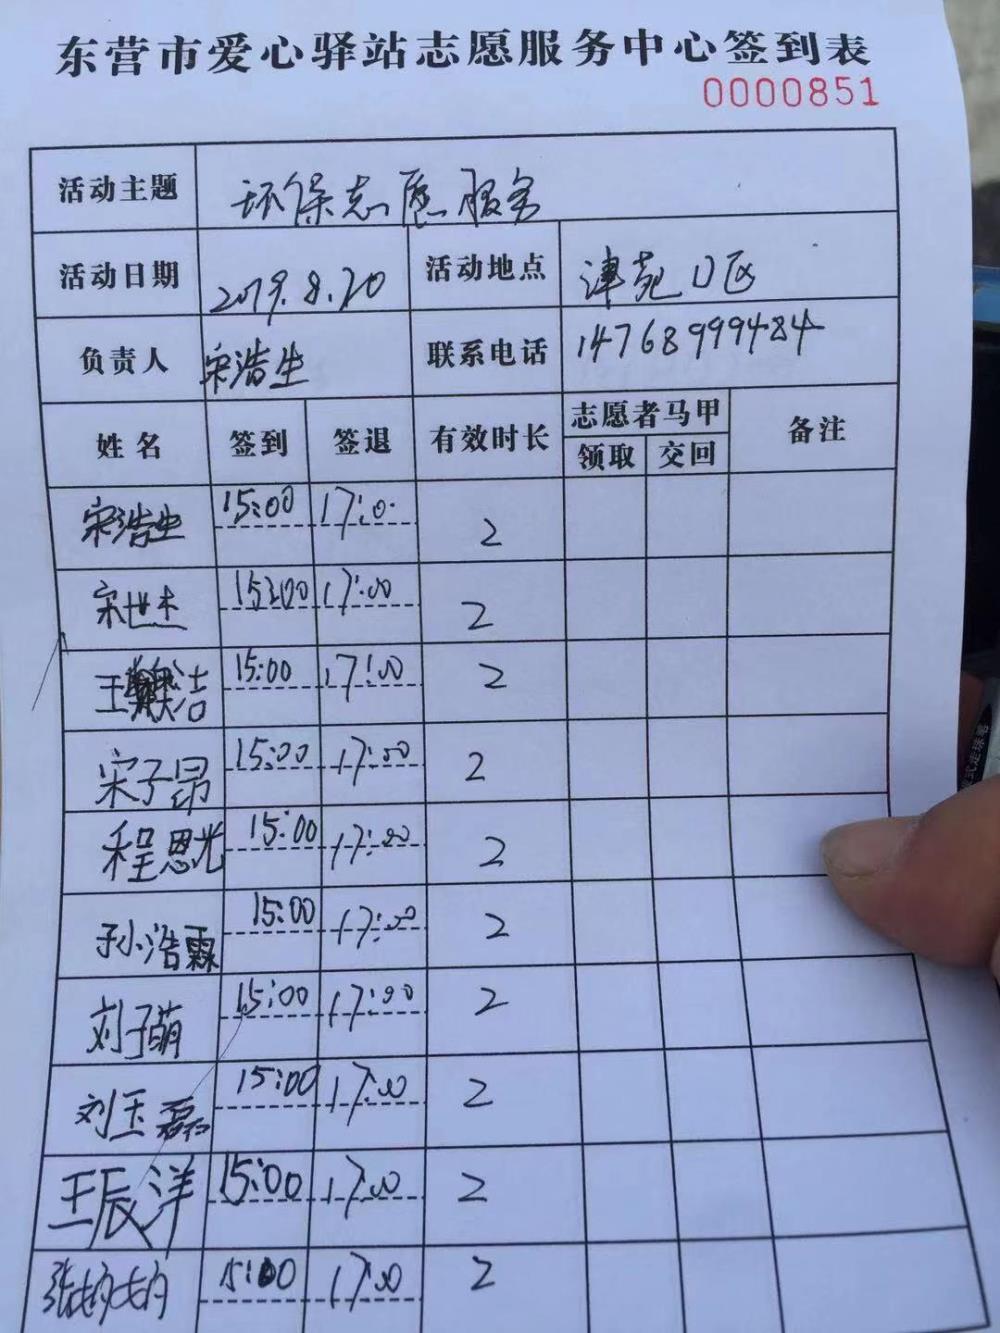 东营市爱心驿站志愿服务中心签到表
0000851
活动主题 环保志愿服务
活动日期 2019.8.20 活动地点 津苑小区
负责人 宋浩生 联系电话 14768999484
姓名 签到 签退 有效时长 志愿者马甲 备注
领取 交回
宋浩生 15:00 17:0 2
宋世杰 15:00 17:00 2
王 洁 15:00 17:00 2
宋子昂 15:00 17:00 2
程恩光 15:00 17:00 2
孙浩霖 15:00 17:00 2
刘子萌 15:00 17:00 2
刘玉磊 15:00 17:00 2
王辰洋 15:00 17:00 2
张 15:00 17:00 2